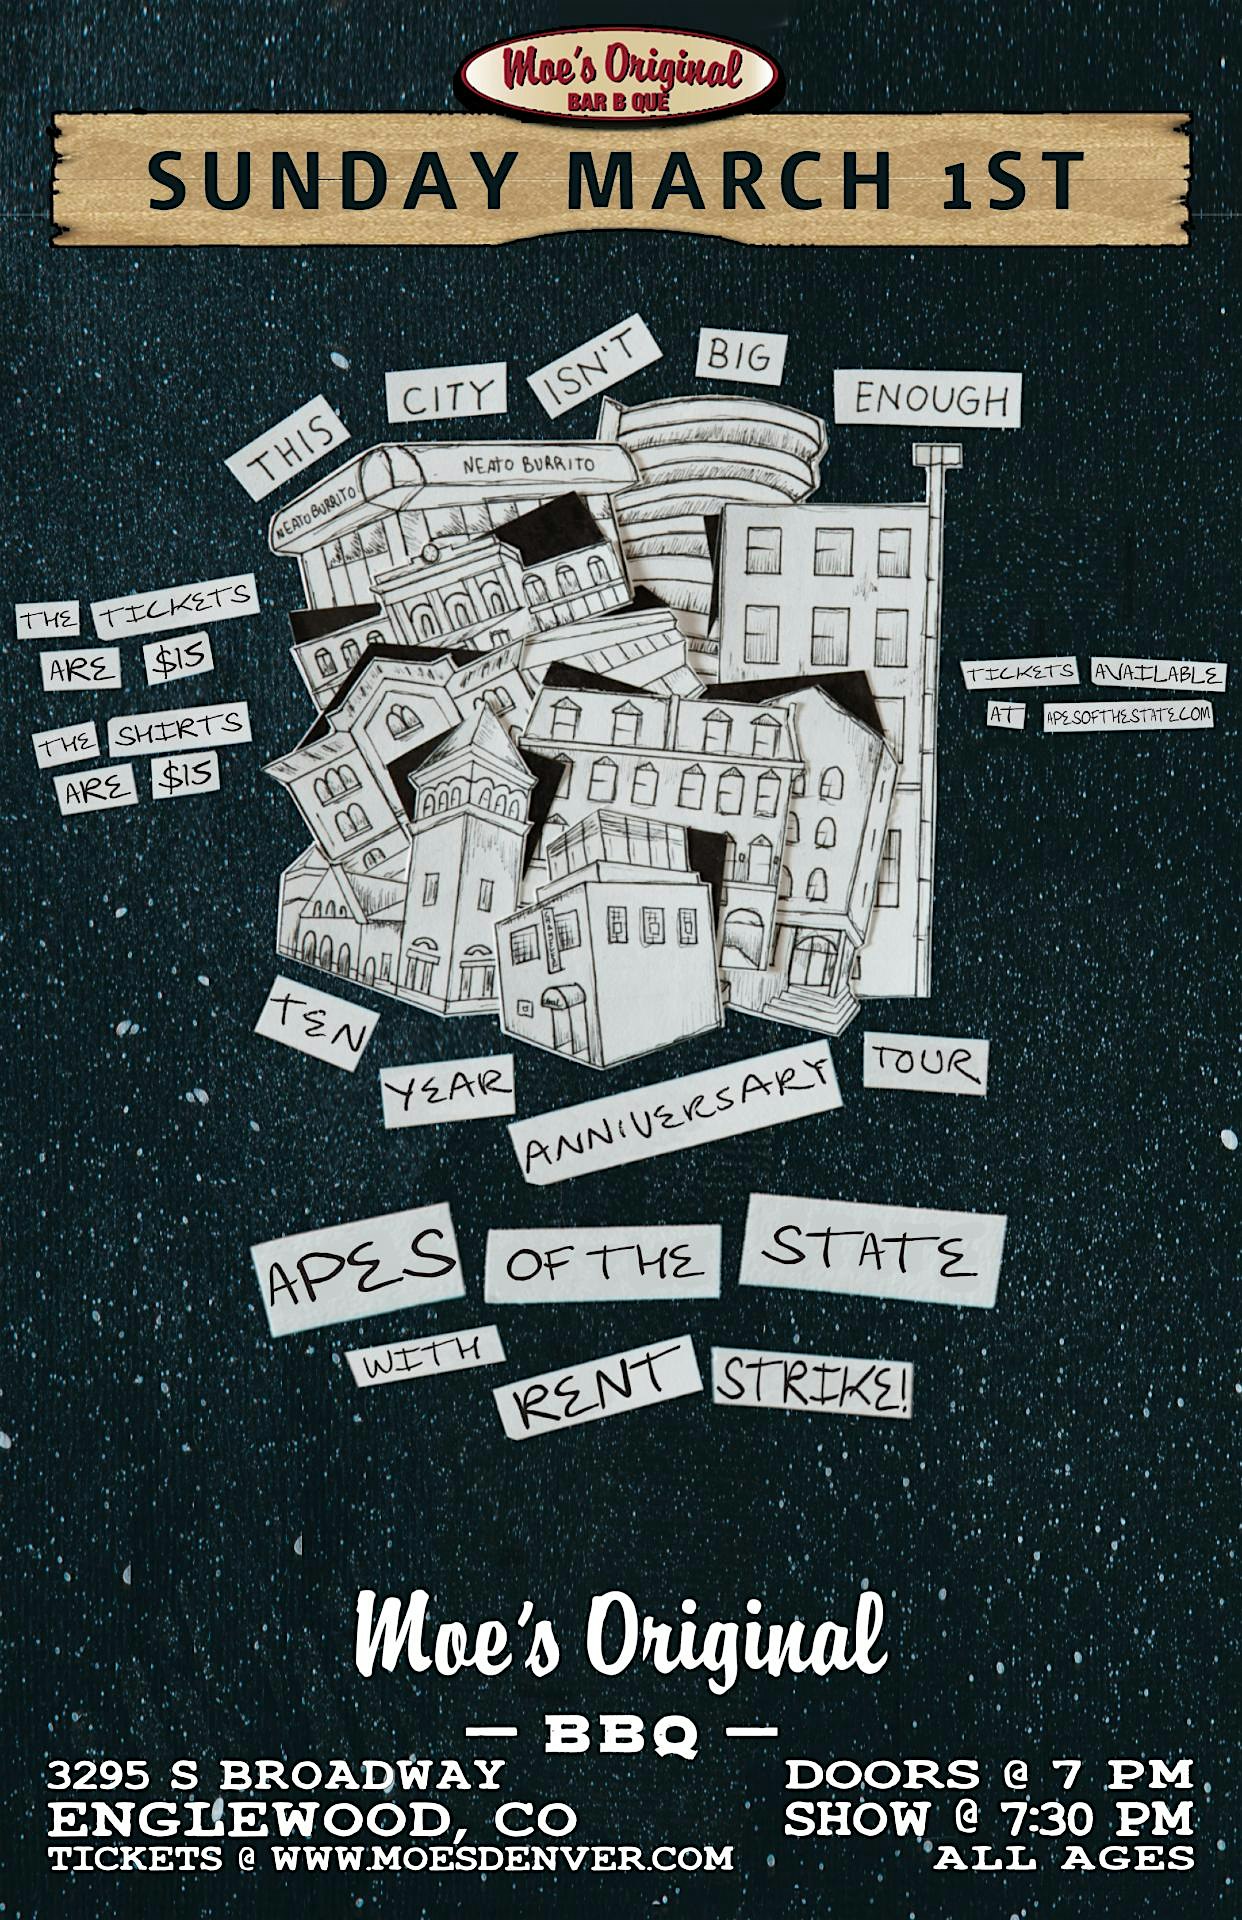 Moe's Original
BAR B QUE
SUNDAY MARCH 1ST
THIS CITY ISN'T BIG ENOUGH
NEATO BURRITO
NEATO BURRITO
THE TICKETS
ARE $15
THE SHIRTS
ARE $15
TICKETS AVAILABLE
AT APESOFTHESTATE.COM
TEN YEAR ANNIVERSARY TOUR
APES OF THE STATE
WITH RENT STRIKE!
Moe's Original
— BBQ —
3295 S BROADWAY
ENGLEWOOD, CO
TICKETS @ WWW.MOESDENVER.COM
DOORS @ 7 PM
SHOW @ 7:30 PM
ALL AGES